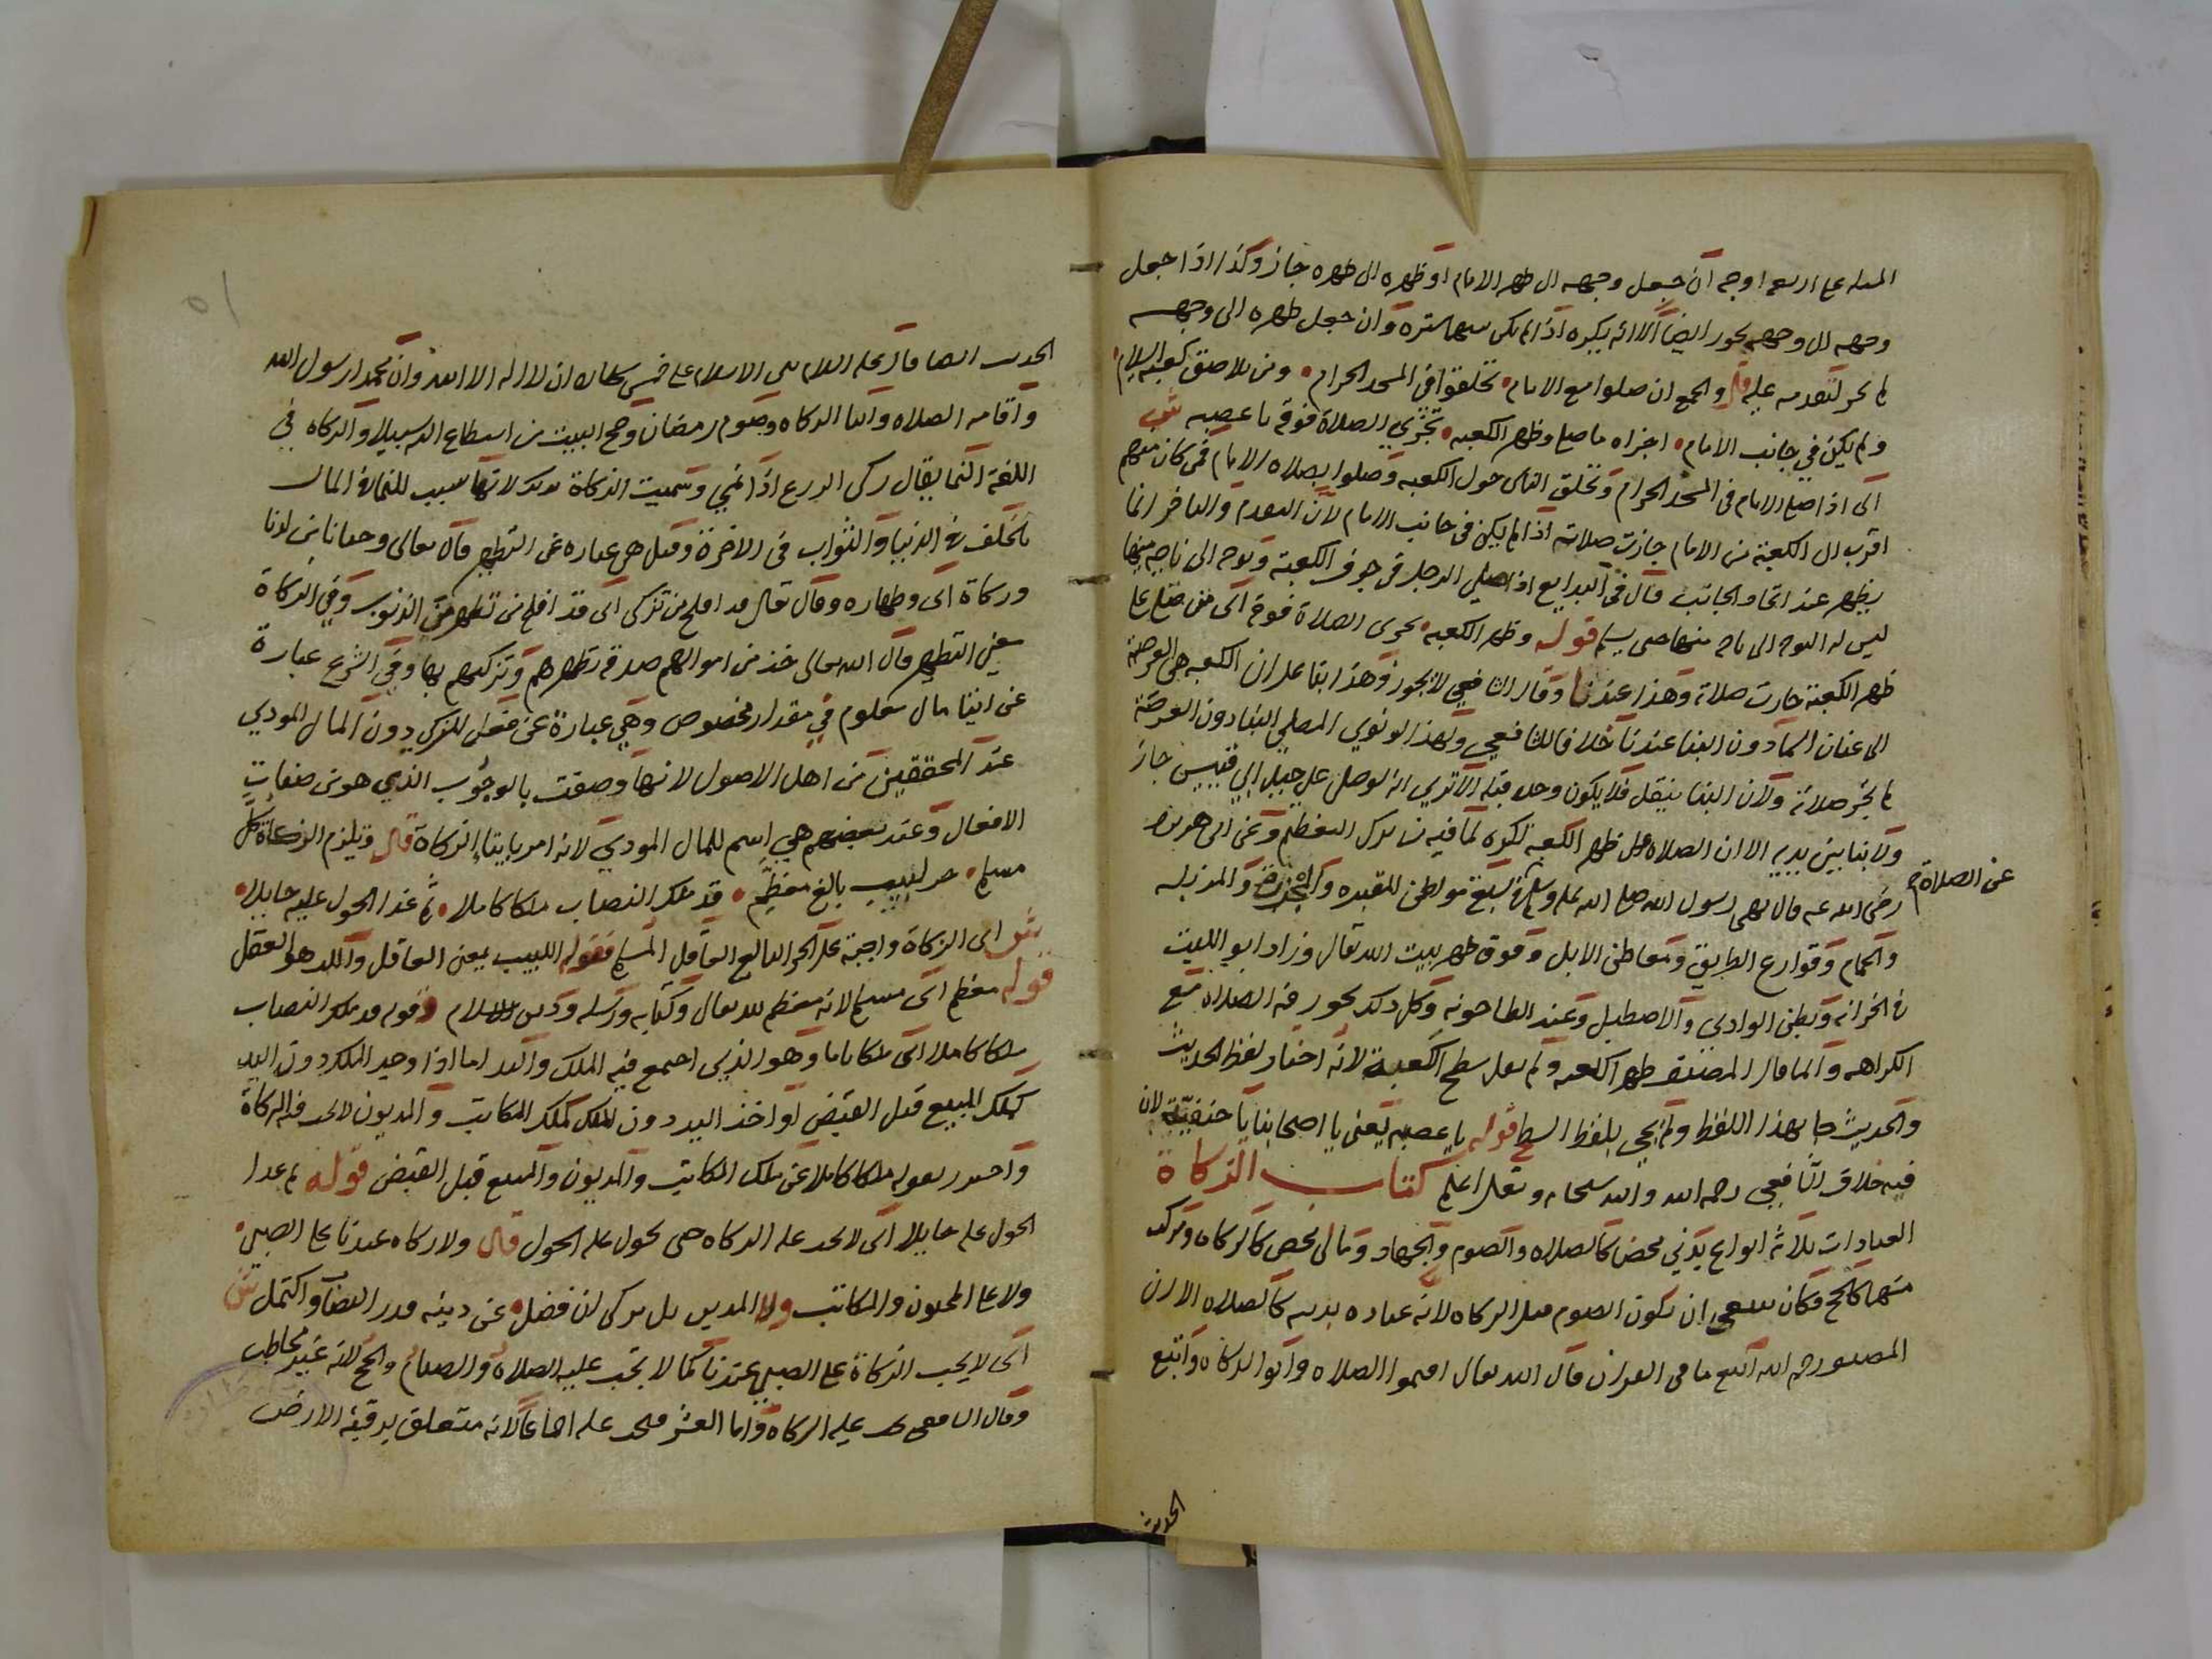 المسله على اربعه اوجه ان جعل وجهه الى ظهر الامام او ظهره الى ظهره جاز وكذا اذا جعل
وجهه الى وجهه يجوز ايضا الا انه يكره اذا لم يكن بينهما ستره وان جعل ظهره الى وجهه
لم يجز لتقدمه عليه قال والجمع ان صلوا مع الامام تحلقوا في المسجد الحرام ومن يلاصق كعبه السلام
ولم يكن في جانب الامام اجزاه ما صلى وظهر الكعبه تجزي الصلاة فوقه يا عصبه ش
اي اذا صلى الامام في المسجد الحرام وتحلق الناس حول الكعبه وصلوا بصلاه الامام فمن كان منهم
اقرب الى الكعبة من الامام جازت صلاته اذا لم يكن في جانب الامام لان التقدم والتاخر انما
يظهر عند اتحاد الجانب قال في البدايع اذا صلى الرجل في جوف الكعبة وتوجه الى ناحيه منها
ليس له التوجه الى ناحيه منها حتى يسلم قوله وظهر الكعبه تجزي الصلاة فوقه اي من صلى على
ظهر الكعبة جازت صلاته وهذا عندنا وقال الشافعي لا يجوز وهذا بناء على ان الكعبه هي العرصة
الى عنان السماء دون البنا عندنا خلافا للشافعي ولهذا لو نوي المصلي البنا دون العرصة
لم يجز صلاته ولان البنا ينقل فلا يكون وحده قبله الا تري انه لو صلى على جبل ابي قبيس جاز
ولا بنا بين يديه الا ان الصلاه على ظهر الكعبه تكره لما فيه من ترك التعظيم وعن ابي هريره
رضي الله عنه قال نهى رسول الله صلى الله عليه وسلم في سبعة مواطن المقبره والمجزرة والمزبله
عن الصلاة
والحمام وقوارع الطريق ومعاطن الابل وفوق ظهر بيت الله تعالى وزاد ابو الليث
في الخزانه وبطن الوادي والاصطبل وعند الطاحونه وكل ذلك يجوز فيه الصلاه مع
الكراهه وانما قال المصنف ظهر الكعبه ولم يقل سطح الكعبة لانه اختار لفظ الحديث
والحديث جا بهذا اللفظ ولم يجي بلفظ السطح قوله يا عصبه يعني يا اصحابنا يا حنفيّة لان
فيه خلاف الشافعي رحمه الله والله سبحانه وتعالى اعلم كتاب الزكاة
العبادات ثلاثه انواع بدني محض كالصلاه والصوم والجهاد ومالي محض كالزكاه ومركب
منهما كالحج وكان ينبغي ان يكون الصوم قبل الزكاه لانه عباده بدنيه كالصلاه الا ان
المصنف رحمه الله اتبع ما في القران قال الله تعالى اقيموا الصلاه واتوا الزكاه واتبع
الحديث
الحديث ايضا قال عليه السلام بني الاسلام على خمس شهاده ان لا اله الا الله وان محمدا رسول الله
واقامه الصلاه وايتا الزكاه وصوم رمضان وحج البيت من استطاع اليه سبيلا والزكاه في
اللغة النما يقال زكى الزرع اذا نمي وسميت الزكاة بذلك لانها سبب للنما في المال
بالخلف في الدنيا والثواب في الاخرة وقيل هي عباره عن التطهر قال تعالى وحنانا من لدنا
وزكاة اي وطهاره وقال تعالى قد افلح من تزكى اي قد افلح من تطهر من الذنوب وفي الزكاة
معنى التطهر قال الله تعالى خذ من اموالهم صدقه تطهرهم وتزكيهم بها وفي الشرع عبارة
عن ايتا مال معلوم في مقدار مخصوص وهي عبارة عن فعل المزكي دون المال المودي
عند المحققين من اهل الاصول لانها وصفت بالوجوب الذي هو من صفات
الافعال وعند بعضهم هي اسم للمال المودي لانه امر بايتا الزكاة قال وتلزم الزكاة كل
مسلم حر لبيب بالغ معظّم قد ملك النصاب ملكا كاملا ثم غدا الحول عليه حايلا
ش اي الزكاة واجبة على الحر البالغ العاقل المسلم فقوله اللبيب يعني العاقل واللب هو العقل
قوله معظم اي مسلم لانه معظم لله تعالى وكتابه ورسله ودين الاسلام وقوله قد ملك النصاب
ملكا كاملا اي ملكا تاما وهو الذي اجتمع فيه الملك واليد اما اذا وجد الملك دون اليد
كملك المبيع قبل القبض او اخذ اليد دون الملك كملك المكاتب والمديون لا يجب فيه الزكاة
واحترز بقوله ملكا كاملا عن ملك المكاتب والمديون والمبيع قبل القبض قوله ثم غدا
الحول عليه حايلا اي لا يجب عليه الزكاه حتى يحول عليه الحول قال ولا زكاه عندنا على الصبي
ولا على المجنون والمكاتب ولا المدين بل يزكى لن فضل عن دينه قدر النصاب واكتمل ش
اي لا يجب الزكاة على الصبي عندنا كما لا يجب عليه الصلاه والصيام والحج لانه غير مخاطب
وقال الشافعي يجب عليه الزكاه واما العشر فيجب عليه اجماعا لانه متعلق برقبة الارض